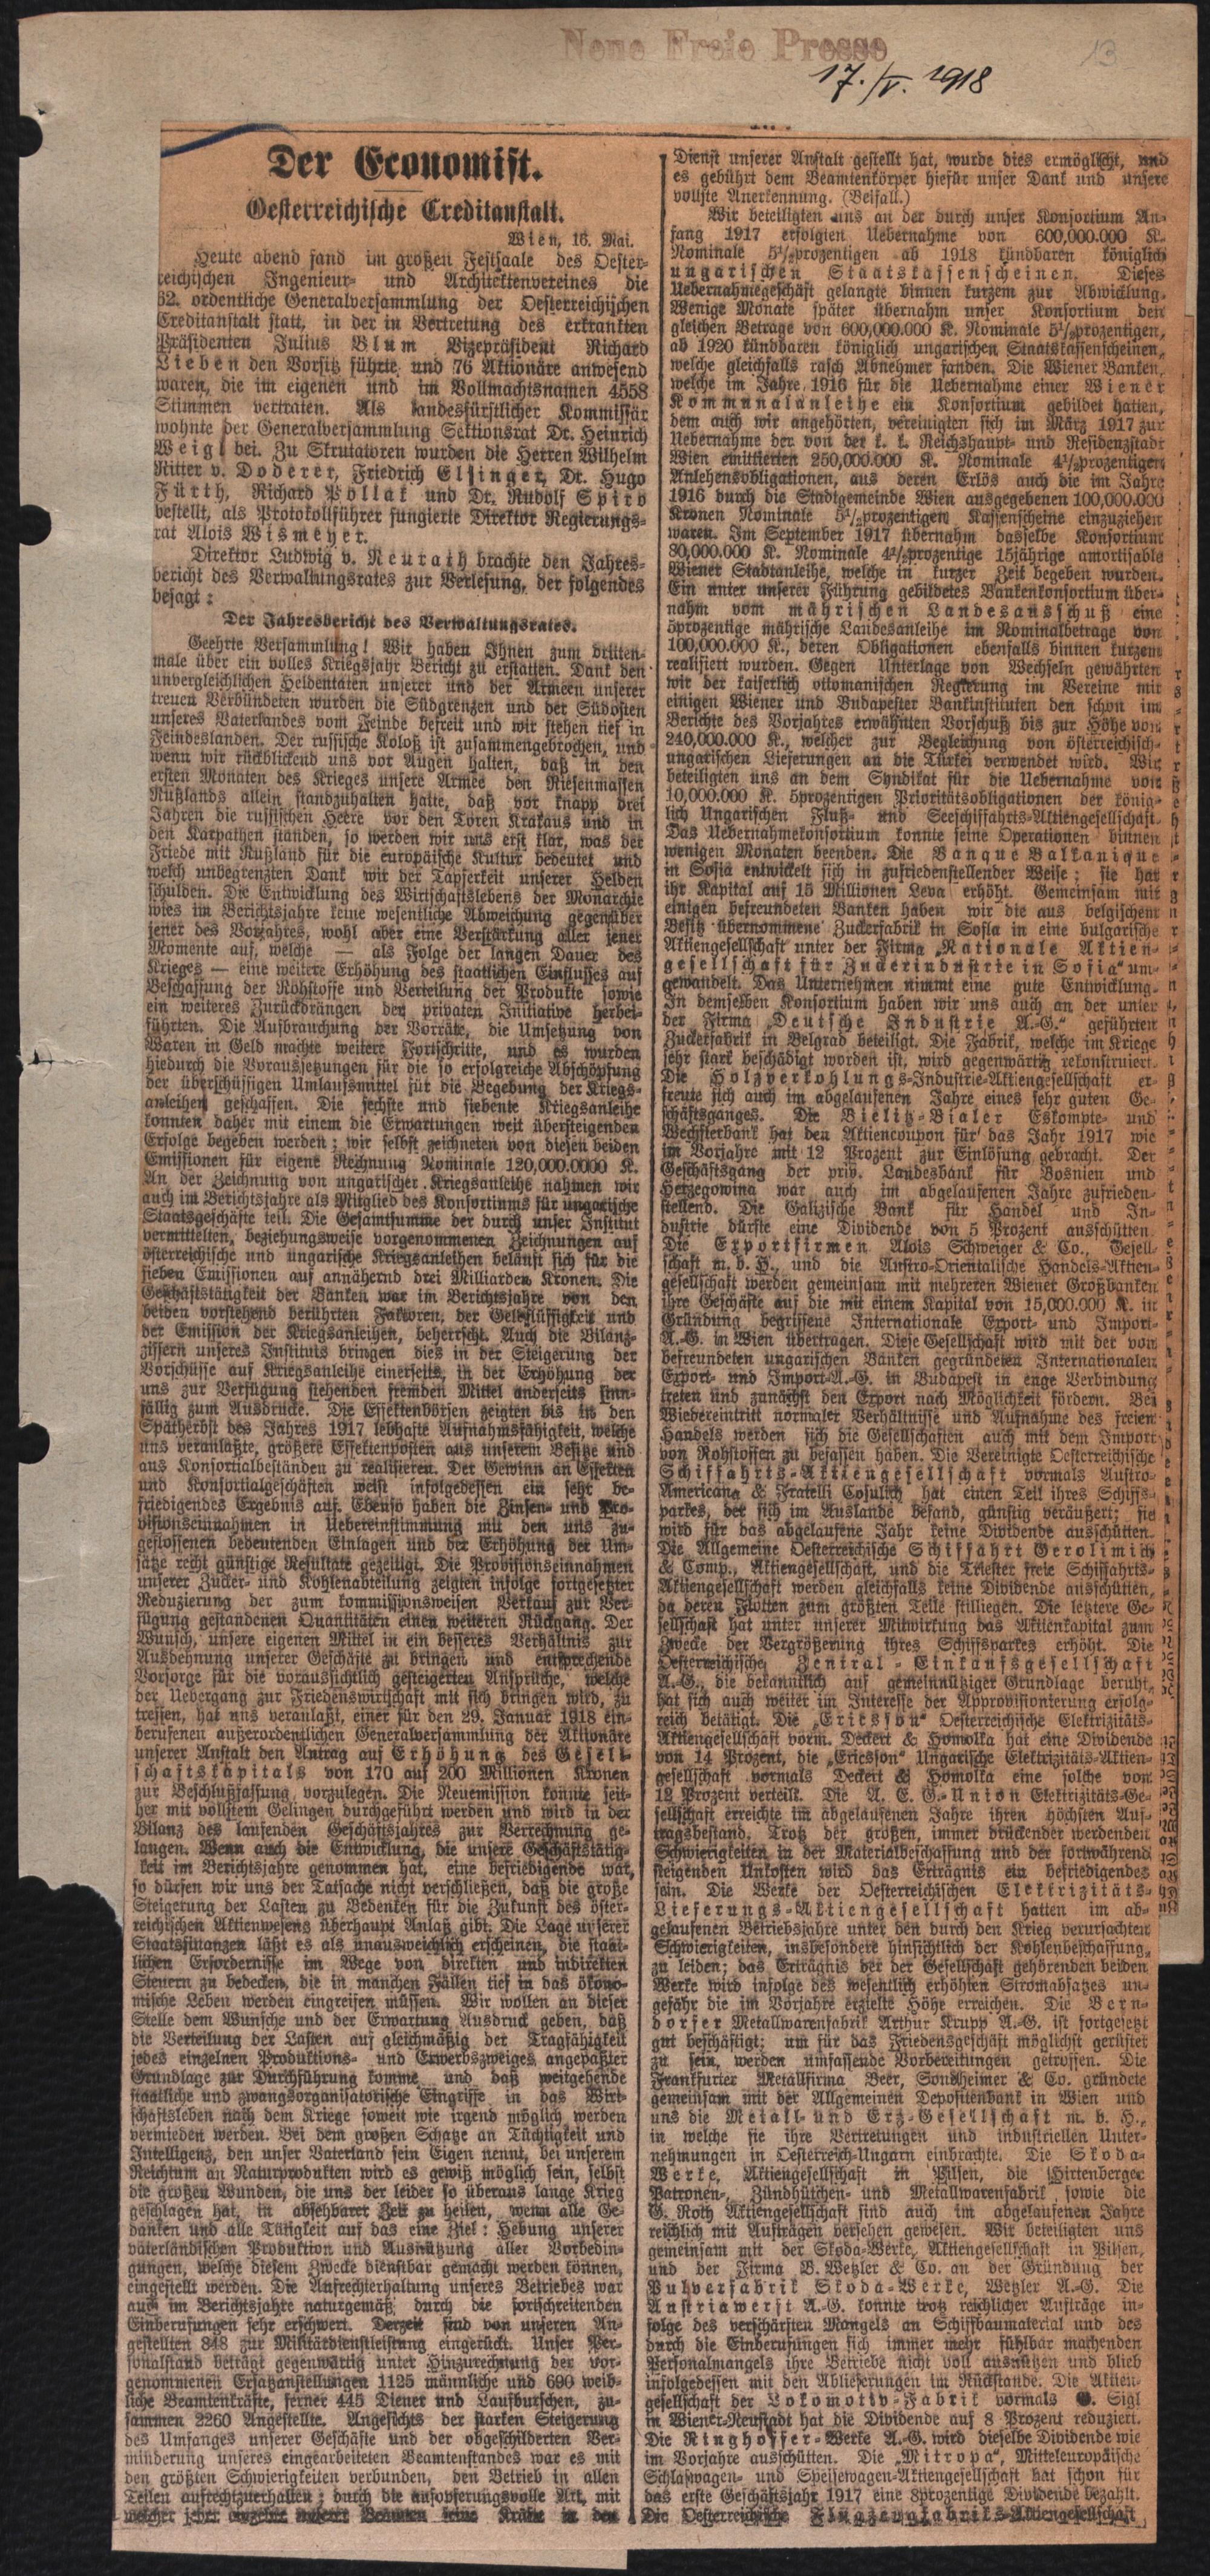 Neue Freie Presse
13
17./V. 1918
Der Economist.
Oesterreichische Creditanstalt.
Wien, 16. Mai.
Heute abend fand im großen Festsaale des Oester-
reichischen Ingenieur- und Architektenvereines die
62. ordentliche Generalversammlung der Oesterreichischen
Creditanstalt statt, in der in Vertretung des erkrankten
Präsidenten Julius Blum Vizepräsident Richard
Lieben den Vorsitz führte und 76 Aktionäre anwesend
waren, die im eigenen und im Vollmachtsnamen 4558
Stimmen vertraten. Als landesfürstlicher Kommissär
wohnte der Generalversammlung Sektionsrat Dr. Heinrich
Weigl bei. Zu Skrutatoren wurden die Herren Wilhelm
Ritter v. Doderer, Friedrich Elsinger, Dr. Hugo
Fürth, Richard Pollak und Dr. Rudolf Spiro
bestellt, als Protokollführer fungierte Direktor Regierungs-
rat Alois Wismeyer.
Direktor Ludwig v. Neurath brachte den Jahres-
bericht des Verwaltungsrates zur Verlesung, der folgendes
besagt:
Der Jahresbericht des Verwaltungsrates.
Geehrte Versammlung! Wir haben Ihnen zum dritten-
male über ein volles Kriegsjahr Bericht zu erstatten. Dank den
unvergleichlichen Heldentaten unserer und der Armeen unserer
treuen Verbündeten wurden die Südgrenzen und der Südosten
unseres Vaterlandes vom Feinde befreit und wir stehen tief in
Feindeslanden. Der russische Koloß ist zusammengebrochen, und
wenn wir rückblickend uns vor Augen halten, daß in den
ersten Monaten des Krieges unsere Armee den Riesenmassen
Rußlands allein standzuhalten hatte, daß vor knapp drei
Jahren die russischen Heere vor den Toren Krakaus und in
den Karpathen standen, so werden wir uns erst klar, was der
Friede mit Rußland für die europäische Kultur bedeutet und
welch unbegrenzten Dank wir der Tapferkeit unserer Helden
schulden. Die Entwicklung des Wirtschaftslebens der Monarchie
wies im Berichtsjahre keine wesentliche Abweichung gegenüber
jener des Vorjahres, wohl aber eine Verstärkung aller jener
Momente auf, welche — als Folge der langen Dauer des
Krieges — eine weitere Erhöhung des staatlichen Einflusses auf
Beschaffung der Rohstoffe und Verteilung der Produkte sowie
ein weiteres Zurückdrängen der privaten Initiative herbei-
führten. Die Aufbrauchung der Vorräte, die Umsetzung von
Waren in Geld machte weitere Fortschritte, und es wurden
hiedurch die Voraussetzungen für die so erfolgreiche Abschöpfung
der überschüssigen Umlaufsmittel für die Begebung der Kriegs-
anleihen geschaffen. Die sechste und siebente Kriegsanleihe
konnten daher mit einem die Erwartungen weit übersteigenden
Erfolge begeben werden; wir selbst zeichneten von diesen beiden
Emissionen für eigene Rechnung Nominale 120,000.0000 K.
An der Zeichnung von ungarischer Kriegsanleihe nahmen wir
auch im Berichtsjahre als Mitglied des Konsortiums für ungarische
Staatsgeschäfte teil. Die Gesamtsumme der durch unser Institut
vermittelten, beziehungsweise vorgenommenen Zeichnungen auf
österreichische und ungarische Kriegsanleihen beläuft sich für die
sieben Emissionen auf annähernd drei Milliarden Kronen. Die
Geschäftstätigkeit der Banken war im Berichtsjahre von den
beiden vorstehend berührten Faktoren, der Geldflüssigkeit und
der Emission der Kriegsanleihen, beherrscht. Auch die Bilanz-
ziffern unseres Instituts bringen dies in der Steigerung der
Vorschüsse auf Kriegsanleihe einerseits, in der Erhöhung der
uns zur Verfügung stehenden fremden Mittel anderseits sinn-
fällig zum Ausdrucke. Die Effektenbörsen zeigten bis in den
Spätherbst des Jahres 1917 lebhafte Aufnahmsfähigkeit, welche
uns veranlaßte, größere Effektenposten aus unserem Besitze und
aus Konsortialbeständen zu realisieren. Der Gewinn an Effekten
und Konsortialgeschäften weist infolgedessen ein sehr be-
friedigendes Ergebnis auf. Ebenso haben die Zinsen- und Pro-
visionseinnahmen in Uebereinstimmung mit den uns zu-
geflossenen bedeutenden Einlagen und der Erhöhung der Um-
sätze recht günstige Resultate gezeitigt. Die Provisionseinnahmen
unserer Zucker- und Kohlenabteilung zeigten infolge fortgesetzter
Reduzierung der zum kommissionsweisen Verkauf zur Ver-
fügung gestandenen Quantitäten einen weiteren Rückgang. Der
Wunsch, unsere eigenen Mittel in ein besseres Verhältnis zur
Ausdehnung unserer Geschäfte zu bringen und entsprechende
Vorsorge für die voraussichtlich gesteigerten Ansprüche, welche
der Uebergang zur Friedenswirtschaft mit sich bringen wird, zu
treffen, hat uns veranlaßt, einer für den 29. Januar 1918 ein-
berufenen außerordentlichen Generalversammlung der Aktionäre
unserer Anstalt den Antrag auf Erhöhung des Gesell-
schaftskapitals von 170 auf 200 Millionen Kronen
zur Beschlußfassung vorzulegen. Die Neuemission konnte seit-
her mit vollstem Gelingen durchgeführt werden und wird in der
Bilanz des laufenden Geschäftsjahres zur Verrechnung ge-
langen. Wenn auch die Entwicklung, die unsere Geschäftstätig-
keit im Berichtsjahre genommen hat, eine befriedigende war,
so dürfen wir uns der Tatsache nicht verschließen, daß die große
Steigerung der Lasten zu Bedenken für die Zukunft des öster-
reichischen Aktienwesens überhaupt Anlaß gibt. Die Lage unserer
Staatsfinanzen läßt es als unausweichlich erscheinen, die staat-
lichen Erfordernisse im Wege von direkten und indirekten
Steuern zu bedecken, die in manchen Fällen tief in das ökono-
mische Leben werden eingreifen müssen. Wir wollen an dieser
Stelle dem Wunsche und der Erwartung Ausdruck geben, daß
die Verteilung der Lasten auf gleichmäßig der Tragfähigkeit
jedes einzelnen Produktions- und Erwerbszweiges angepaßter
Grundlage zur Durchführung komme und daß weitgehende
staatliche und zwangsorganisatorische Eingriffe in das Wirt-
schaftsleben nach dem Kriege soweit wie irgend möglich werden
vermieden werden. Bei dem großen Schatze an Tüchtigkeit und
Intelligenz, den unser Vaterland sein Eigen nennt, bei unserem
Reichtum an Naturprodukten wird es gewiß möglich sein, selbst
die großen Wunden, die uns der leider so überaus lange Krieg
geschlagen hat, in absehbarer Zeit zu heilen, wenn alle Ge-
danken und alle Tätigkeit auf das eine Ziel: Hebung unserer
vaterländischen Produktion und Ausnützung aller Vorbedin-
gungen, welche diesem Zwecke dienstbar gemacht werden können,
eingestellt werden. Die Aufrechterhaltung unseres Betriebes war
auch im Berichtsjahre naturgemäß durch die fortschreitenden
Einberufungen sehr erschwert. Derzeit sind von unseren An-
gestellten 848 zur Militärdienstleistung eingerückt. Unser Per-
sonalstand beträgt gegenwärtig unter Hinzurechnung der vor-
genommenen Ersatzanstellungen 1125 männliche und 690 weib-
liche Beamtenkräfte, ferner 445 Diener und Laufburschen, zu-
sammen 2260 Angestellte. Angesichts der starken Steigerung
des Umfanges unserer Geschäfte und der obgeschilderten Ver-
minderung unseres eingearbeiteten Beamtenstandes war es mit
den größten Schwierigkeiten verbunden, den Betrieb in allen
Teilen aufrechtzuerhalten; durch die aufopferungsvolle Art, mit
welcher jeder einzelne unserer Beamten seine Kräfte in den
Dienst unserer Anstalt gestellt hat, wurde dies ermöglicht, und
es gebührt dem Beamtenkörper hiefür unser Dank und unsere
vollste Anerkennung. (Beifall.)
Wir beteiligten uns an der durch unser Konsortium An-
fang 1917 erfolgten Uebernahme von 600,000.000 K.
Nominale 5½prozentigen ab 1918 kündbaren königlich
ungarischen Staatskassenscheinen. Dieses
Uebernahmegeschäft gelangte binnen kurzem zur Abwicklung.
Wenige Monate später übernahm unser Konsortium den
gleichen Betrage von 600,000.000 K. Nominale 5½prozentigen,
ab 1920 kündbaren königlich ungarischen Staatskassenscheinen,
welche gleichfalls rasch Abnehmer fanden. Die Wiener Banken,
welche im Jahre 1916 für die Uebernahme einer Wiener
Kommunalanleihe ein Konsortium gebildet hatten,
dem auch wir angehörten, vereinigten sich im März 1917 zur
Uebernahme der von der k. k. Reichshaupt- und Residenzstadt
Wien emittierten 250,000.000 K. Nominale 4½prozentigen
Anlehensobligationen, aus deren Erlös auch die im Jahre
1916 durch die Stadtgemeinde Wien ausgegebenen 100,000.000
Kronen Nominale 5½prozentigen Kassenscheine einzuziehen
waren. Im September 1917 übernahm dasselbe Konsortium
80,000.000 K. Nominale 4½prozentige 15jährige amortisable
Wiener Stadtanleihe, welche in kurzer Zeit begeben wurden.
Ein unter unserer Führung gebildetes Bankenkonsortium über-
nahm vom mährischen Landesausschuß eine
5prozentige mährische Landesanleihe im Nominalbetrage von
100,000.000 K., deren Obligationen ebenfalls binnen kurzem
realisiert wurden. Gegen Unterlage von Wechseln gewährten
wir der kaiserlich ottomanischen Regierung im Vereine mit
einigen Wiener und Budapester Bankinstituten den schon im
Berichte des Vorjahres erwähnten Vorschuß bis zur Höhe von
240,000.000 K., welcher zur Begleichung von österreichisch-
ungarischen Lieferungen an die Türkei verwendet wird. Wir
beteiligten uns an dem Syndikat für die Uebernahme von
10,000.000 K. 5prozentigen Prioritätsobligationen der könig-
lich Ungarischen Fluß- und Seeschiffahrts-Aktiengesellschaft.
Das Uebernahmekonsortium konnte seine Operationen binnen
wenigen Monaten beenden. Die Banque Balkanique
in Sofia entwickelt sich in zufriedenstellender Weise; sie hat
ihr Kapital auf 15 Millionen Leva erhöht. Gemeinsam mit
einigen befreundeten Banken haben wir die aus belgischem
Besitz übernommene Zuckerfabrik in Sofia in eine bulgarische
Aktiengesellschaft unter der Firma „Nationale Aktien-
gesellschaft für Zuckerindustrie in Sofia“ um-
gewandelt. Das Unternehmen nimmt eine gute Entwicklung.
In demselben Konsortium haben wir uns auch an der unter
der Firma „Deutsche Industrie A.-G.“ geführten
Zuckerfabrik in Belgrad beteiligt. Die Fabrik, welche im Kriege
sehr stark beschädigt worden ist, wird gegenwärtig rekonstruiert.
Die Holzverkohlungs-Industrie-Aktiengesellschaft er-
freute sich auch im abgelaufenen Jahre eines sehr guten Ge-
schäftsganges. Die Bielitz-Bialer Eskompte- und
Wechslerbank hat den Aktiencoupon für das Jahr 1917 wie
im Vorjahre mit 12 Prozent zur Einlösung gebracht. Der
Geschäftsgang der priv. Landesbank für Bosnien und
Herzegowina war auch im abgelaufenen Jahre zufrieden-
stellend. Die Galizische Bank für Handel und In-
dustrie dürfte eine Dividende von 5 Prozent ausschütten.
Die Exportfirmen Alois Schweiger & Co., Gesell-
schaft m. b. H., und die Austro-Orientalische Handels-Aktien-
gesellschaft werden gemeinsam mit mehreren Wiener Großbanken
ihre Geschäfte auf die mit einem Kapital von 15,000.000 K. in
Gründung begriffene Internationale Export- und Import-
A.-G. in Wien übertragen. Diese Gesellschaft wird mit der von
befreundeten ungarischen Banken gegründeten Internationalen
Export- und Import-A.-G. in Budapest in enge Verbindung
treten und zunächst den Export nach Möglichkeit fördern. Bei
Wiedereintritt normaler Verhältnisse und Aufnahme des freien
Handels werden sich die Gesellschaften auch mit dem Import
von Rohstoffen zu befassen haben. Die Vereinigte Oesterreichische
Schiffahrts-Aktiengesellschaft vormals Austro-
Americana & Fratelli Cosulich hat einen Teil ihres Schiffs-
parkes, der sich im Auslande befand, günstig veräußert; sie
wird für das abgelaufene Jahr keine Dividende ausschütten.
Die Allgemeine Oesterreichische Schiffahrt Gerolimich
& Comp., Aktiengesellschaft, und die Triester freie Schiffahrts-
Aktiengesellschaft werden gleichfalls keine Dividende ausschütten,
da deren Flotten zum größten Teile stilliegen. Die letztere Ge-
sellschaft hat unter unserer Mitwirkung das Aktienkapital zum
Zwecke der Vergrößerung ihres Schiffsparkes erhöht. Die
Oesterreichische Zentral-Einkaufsgesellschaft
A.-G., die bekanntlich auf gemeinnütziger Grundlage beruht,
hat sich auch weiter im Interesse der Approvisionierung erfolg-
reich betätigt. Die „Ericsson“ Oesterreichische Elektrizitäts-
Aktiengesellschaft vorm. Deckert & Homolka hat eine Dividende
von 14 Prozent, die „Ericsson“ Ungarische Elektrizitäts-Aktien-
gesellschaft vormals Deckert & Homolka eine solche von
12 Prozent verteilt. Die A. E. G.-Union Elektrizitäts-Ge-
sellschaft erreichte im abgelaufenen Jahre ihren höchsten Auf-
tragsbestand. Trotz der großen, immer drückender werdenden
Schwierigkeiten in der Materialbeschaffung und der fortwährend
steigenden Unkosten wird das Erträgnis ein befriedigendes
sein. Die Werke der Oesterreichischen Elektrizitäts-
Lieferungs-Aktiengesellschaft hatten im ab-
gelaufenen Betriebsjahre unter den durch den Krieg verursachten
Schwierigkeiten, insbesondere hinsichtlich der Kohlenbeschaffung,
zu leiden; das Erträgnis der der Gesellschaft gehörenden beiden
Werke wird infolge des wesentlich erhöhten Stromabsatzes un-
gefähr die im Vorjahre erzielte Höhe erreichen. Die Bern-
dorfer Metallwarenfabrik Arthur Krupp A.-G. ist fortgesetzt
gut beschäftigt; um für das Friedensgeschäft möglichst gerüstet
zu sein, werden umfassende Vorbereitungen getroffen. Die
Frankfurter Metallfirma Beer, Sondheimer & Co. gründete
gemeinsam mit der Allgemeinen Depositenbank in Wien und
uns die Metall- und Erz-Gesellschaft m. b. H.,
in welche sie ihre Vertretungen und industriellen Unter-
nehmungen in Oesterreich-Ungarn einbrachte. Die Skoda-
Werke, Aktiengesellschaft in Pilsen, die Hirtenberger
Patronen-, Zündhütchen- und Metallwarenfabrik sowie die
G. Roth Aktiengesellschaft sind auch im abgelaufenen Jahre
reichlich mit Aufträgen versehen gewesen. Wir beteiligten uns
gemeinsam mit der Skoda-Werke, Aktiengesellschaft in Pilsen,
und der Firma B. Wetzler & Co. an der Gründung der
Pulverfabrik Skoda-Werke, Wetzler A.-G. Die
Austriawerft A.-G. konnte trotz reichlicher Aufträge in-
folge des verschärften Mangels an Schiffbaumaterial und des
durch die Einberufungen sich immer mehr fühlbar machenden
Personalmangels ihre Betriebe nicht voll ausnützen und blieb
infolgedessen mit den Ablieferungen im Rückstande. Die Aktien-
gesellschaft der Lokomotiv-Fabrik vormals G. Sigl
in Wiener-Neustadt hat die Dividende auf 8 Prozent reduziert.
Die Ringhoffer-Werke A.-G. wird dieselbe Dividende wie
im Vorjahre ausschütten. Die „Mitropa“, Mitteleuropäische
Schlafwagen- und Speisewagen-Aktiengesellschaft hat schon für
das erste Geschäftsjahr 1917 eine 8prozentige Dividende bezahlt.
Die Oesterreichische Flugzeugfabriks-Aktiengesellschaft